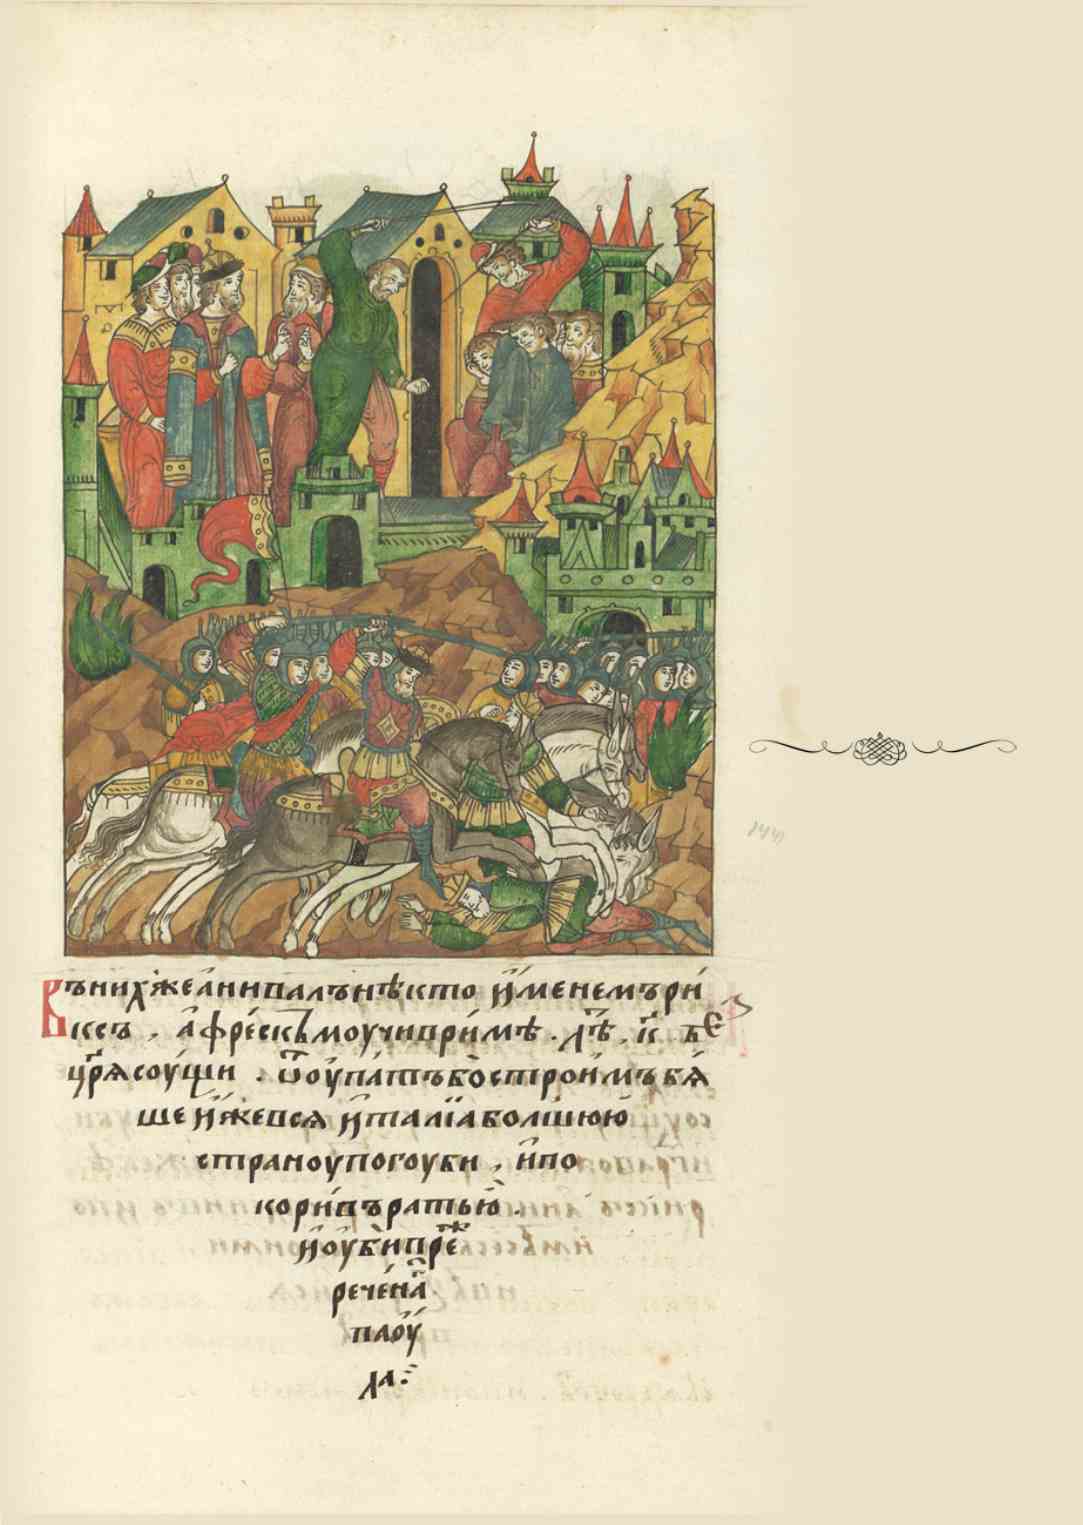 Въ них же анивалъ нѣкто именемъ ри
ксъ, афрескьмоучи в римѣ. лѣ, к҃. бе
ц҃ря соущи. ѿ оупатъ бо строимъ бя
ше иже вся италїа болшюю
страноу погоуби, и по
коривъ ратью.
и оуби пре
речена
паоу
ла